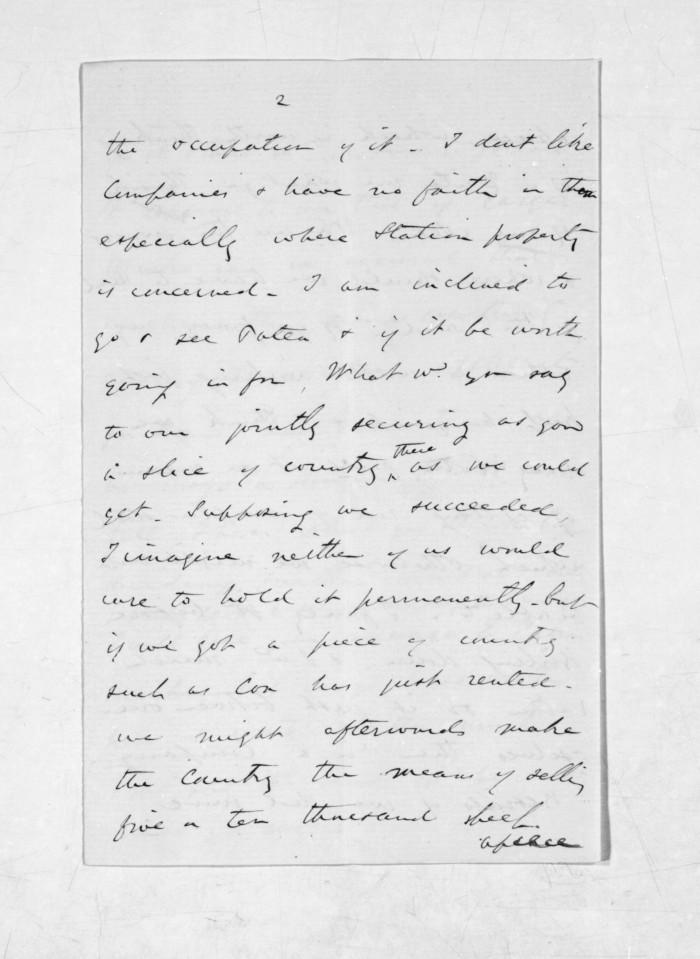 2
the occupation of it - I dont like
Companies & have no faith in them
especially where Station property
is concerned - I am inclined to
go & see Patea & if it be worth
going in for, What wd. you say
to our jointly securing as good
a slice of country there as we could
get - Supposing we succeeded,
I imagine neither of us would
care to hold it permanently - but
if we got a piece of country
such as Cox has just rented -
we might afterwards make
the country the means of selling
five or ten thousand sheep